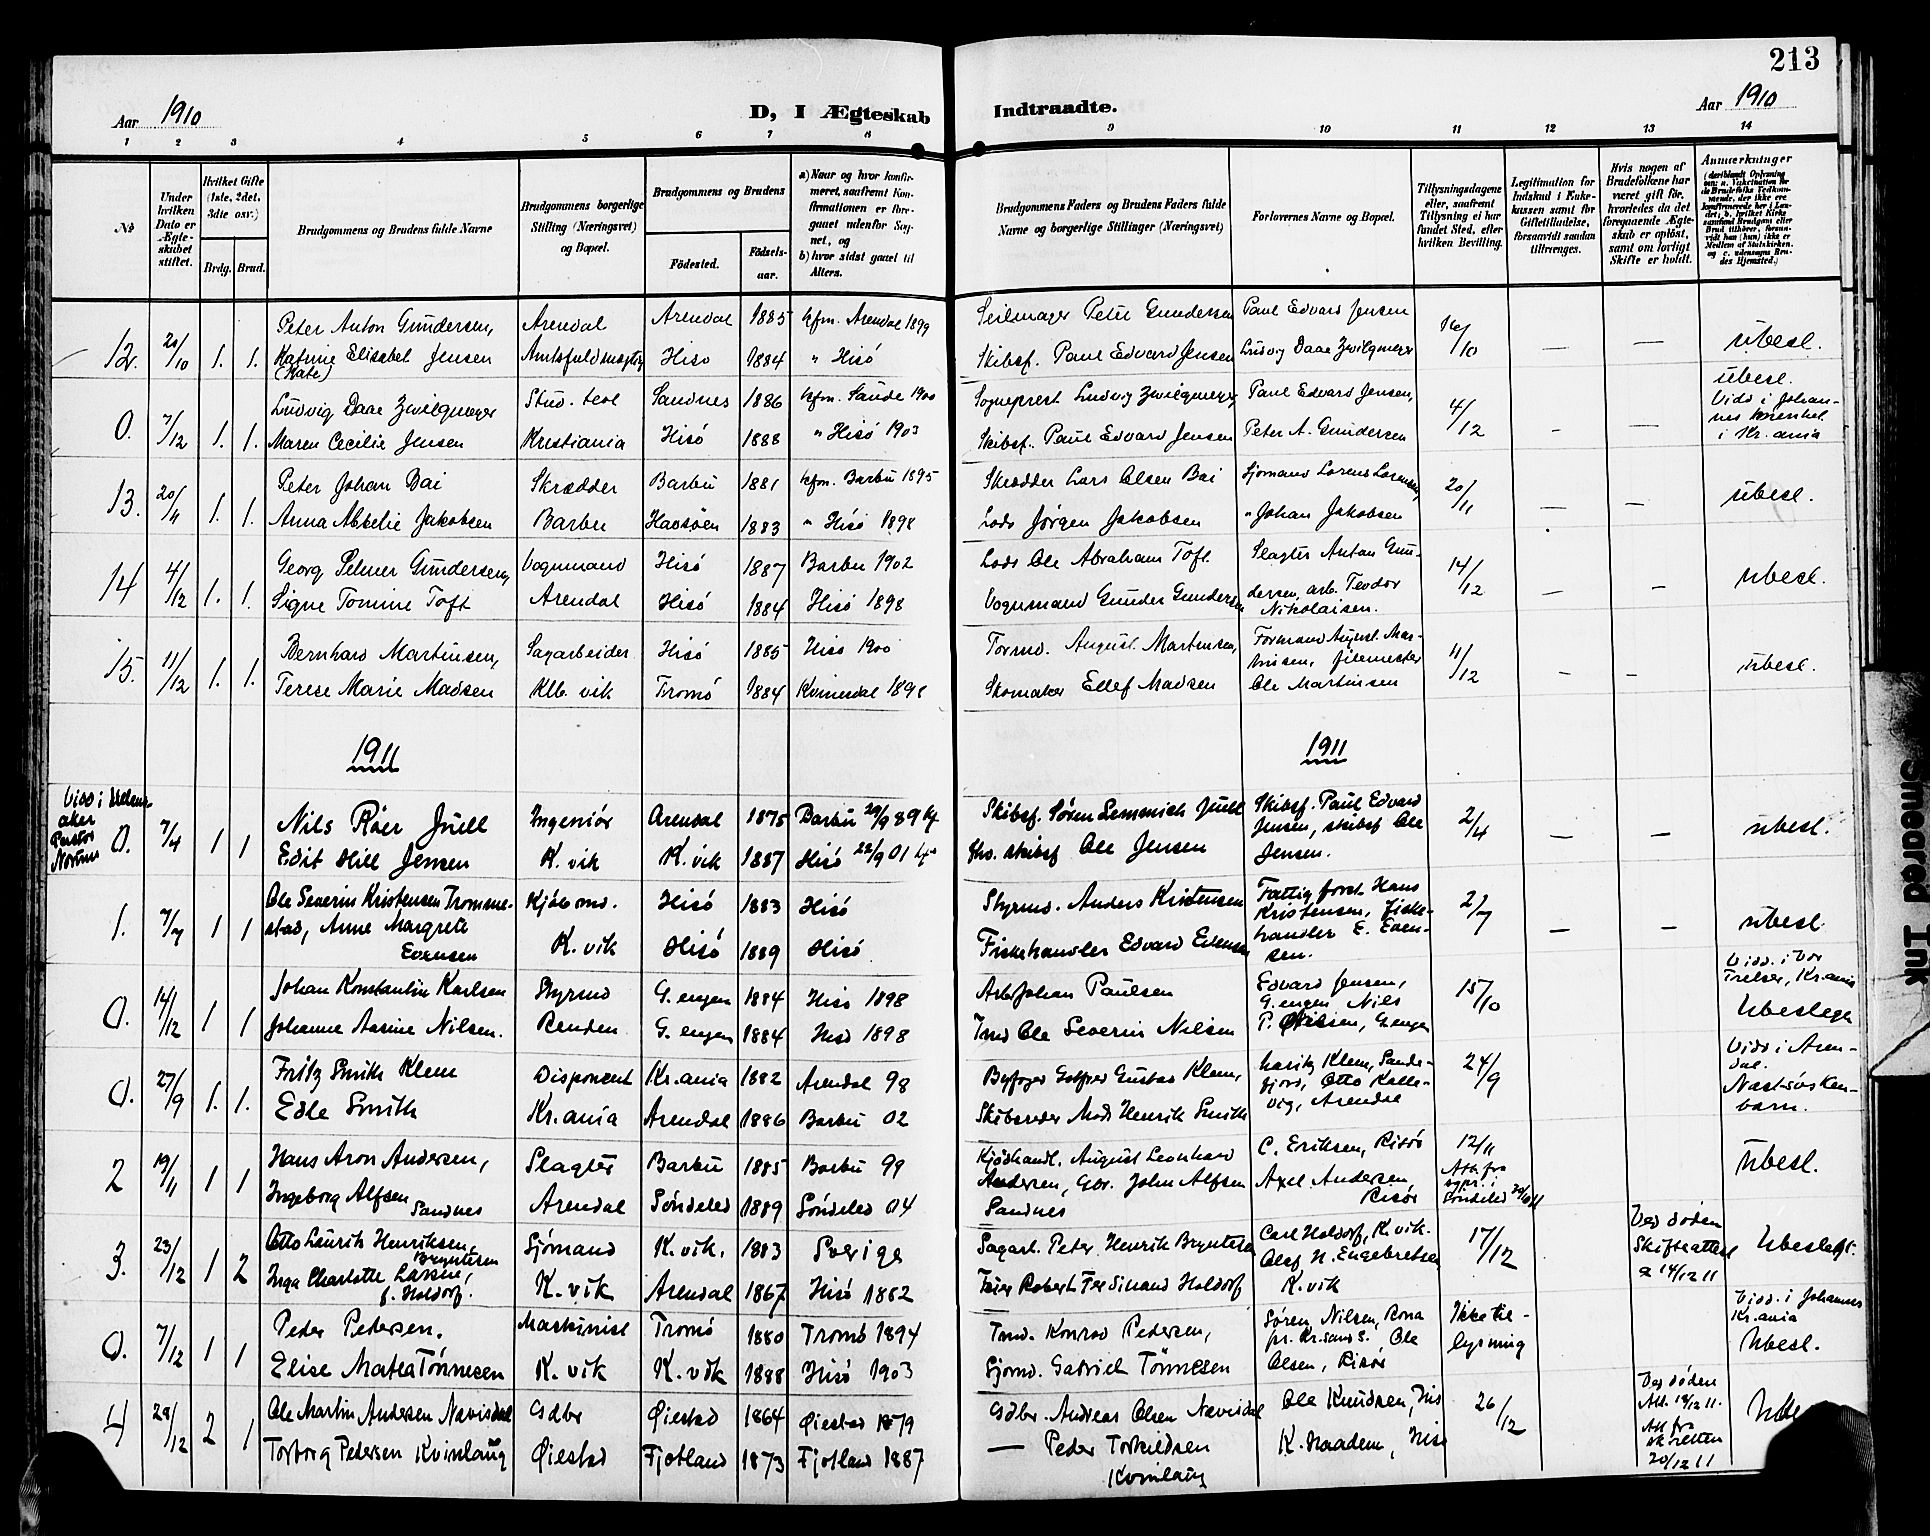 213
Aar 1910
D, I Ægteskab Indtraadte.
Aar 1910
1 2 3 4 5 6 7 8 9 10 11 12 13 14
No
Under hvilken Dato er Ægteskabet stiftet.
Hvilket Gifte (1ste, 2det, 3die osv.)
Brdg. Brud.
Brudgommens og Brudens fulde Navne
Brudgommens borgerlige Stilling (Næringsvei) og Bopæl.
Brudgommens og Brudens
Fødested.
Fødselsaar.
a) Naar og hvor konfirmeret, saafremt Konfirmationen er foregaaet udenfor Sognet, og
b) hvor sidst gaaet til Alters.
Brudgommens Faders og Brudens Faders fulde Navne og borgerlige Stillinger (Næringsvei)
Forlovernes Navne og Bopæl.
Tillysningsdagene eller, saafremt Tillysning ei har fundet Sted, efter hvilken Bevilling.
Legitimation for Indskud i Enkekassen samt for Giftetilladelse, forsaavidt saadan tiltrænges.
Hvis nogen af Brudefolkene har været gift før, hvorledes da det foregaaende Ægteskab er opløst, samt om lovligt Skifte er holdt.
Anmærkninger
12. 20/10 1. 1. Peter Anton Gundersen, Arendal Arendal 1885 kfm. Arendal 1899 Seilmager Peter Gundersen Paul Edvard Jensen 16/10 — — ubesl.
Katrine Elisabet Jensen Amtsfuldmægtig Hisø 1884 " Hisö Skibsf. Paul Edvard Jensen Ludvig Daae Zwilgmeyer
(Kate)
0. 7/12 1. 1. Ludvig Daae Zwilgmeyer Stud. teol Sandnes 1886 kfm. Saude 1900 Sogneprest Ludvig Zwilgmeyer Paul Edvard Jensen, 4/12 - — ubesl. Vidd i Johannes kirke i Kr.ania
Maren Cecilie Jensen Kristiania Hisö 1888 " Hisö 1903 Skibsf. Paul Edvard Jensen Peter A. Gundersen
13. 20/11 1. 1. Peter Johan Bai Skrædder Barbu 1881 kfm. Barbu 1895 Skrædder Lars Olsen Bai Sjømand Lorens Lorensen 20/11 — — ubesl.
Anna Abkelie Jakobsen Barbu Havsøen 1883 " Hisö 1898 Lods Jørgen Jakobsen " Johan Jakobsen
14 4/12 1. 1. Georg Pelmer Gundersen, Vognmand Hisö 1887 Barbu 1902 Lods Ole Abraham Toft. Slagter Anton Gun- 14/12 — — ubesl.
Signe Tomine Toft Arendal Hisö 1884 Hisö 1898 Vognmand Gunder Gundersen dersen, arb. Teodor Nikolaisen.
15. 11/12 1. 1. Bernhard Martinsen, Sagarbeider Hisö 1885 Hisö 1900 Tormd. August Martinsen, Formand August Mar- 11/12 — — ubesl.
Terese Marie Madsen Klb. vik Tromö 1884 Kvinesdal 1898 Skomaker Ellef Madsen tinsen, filemester Ole Martinsen
1911
1911
Vidd i
aker
Pastor
0. 7/4 1 1 Nils Röer Juell Ingeniör Arendal 1875 Barbu 29/9 89 Skibsf. Søren Lemmich Juell Skibsf. Paul Edvard 2/4 — — ubesl.
Edit Hill Jensen K. vik K. vik 1887 Hisö 22/9 01 skibsf Ole Jensen Jensen, skibsf Ole Jensen.
1. 7/7 1 1 Ole Severin Kristensen Tromme- Kjöbmd. Hisö 1883 Hisö Styrmd. Anders Kristensen Fattigforst. Hans 2/7 — — ubesl.
stad, Anne Margrete Evensen K. vik Hisö 1889 Hisö. Fiskehandler Edvard Evensen Kristensen, Fiskehandler E. Evensen.
0. 14/12 1 1 Johan Konstantin Karlsen Styrmd G. engen 1884 Hisö 1898 Arb Johan Paulsen Edvard Jensen, G. engen Nils 15/10 Vidd. i Vor Frelser, Kr.ania
Johanne Aasine Nilsen. Renden G. engen 1884 Hisö 1898 Tmd Ole Severin Nilsen P. Nilsen, G. engen Ubeslegt
0. 27/9 1. 1. Fritz Smith Klem Disponent Kr.ania 1882 Arendal 98 Byfoged Gotfred Gustav Klem, Klem, Sandefjord, Otto Kallevig, Arendal 24/9 Vidd i Arendal. Næstsøskenbarn.
Edle Smith Kr.ania Arendal 1886 Barbu 02 Skibsreder Mads Henrik Smith
2 19/11 1 1 Hans Aron Andersen, Slagter Barbu 1885 Barbu 99 Kjødhandl. August Leonhard C. Eriksen, Risör 12/11 Ubesl.
Ingeborg Alfsen Sandnes Arendal Söndeled 1889 Söndeled 04 Andersen, Gbr. John Alfsen Sandnes Axel Andersen, Risör Att. fra sgpr. i Söndeled
3. 23/12 1 2 Otto Laurits Henriksen Bryntesen Sjömand K. vik. 1883 Sverige Sagarb. Peter Henrik Bryntesen Carl Holdorf, K. vik. 17/12 Ved døden Skifteattest a 14/12 11 Ubeslegt.
Inga Charlotte Lassine, f. Holdorf. K. vik Arendal 1867 Hisö 1882 Feier Robert Ferdinand Holdorf Olaf N. Engebretsen K. vik
0. 7/12 1 1 Peder Pedersen. Maskinist Tromö 1880 Tromö 1894 Tmd. Konrad Pedersen, Sören Nilsen, Rona pr. Kr.sand S. Ole Ikke tillysning Vidd. i Johannes Kr.ania
Elise Matea Tönnesen K. vik K. vik 1888 Hisö 1903 Sjömd. Gabriel Tönnesen Olsen, Risör Ubesl.
4 29/12 2 1 Ole Martin Andersen Navisdal Gdbr Øiestad 1864 Øiestad 1879 Gdbr. Andreas Olsen Navisdal Ole Knudsen, His 26/12 Ved døden Att. 18/12 11.
Torborg Petersen Kvinlaug Øiestad Fjotland 1873 Fjotland 1887 — Peder Torkildsen Kvinlaug K. Naadem, His Att fra skifteretten 20/12 11
Smeared Ink